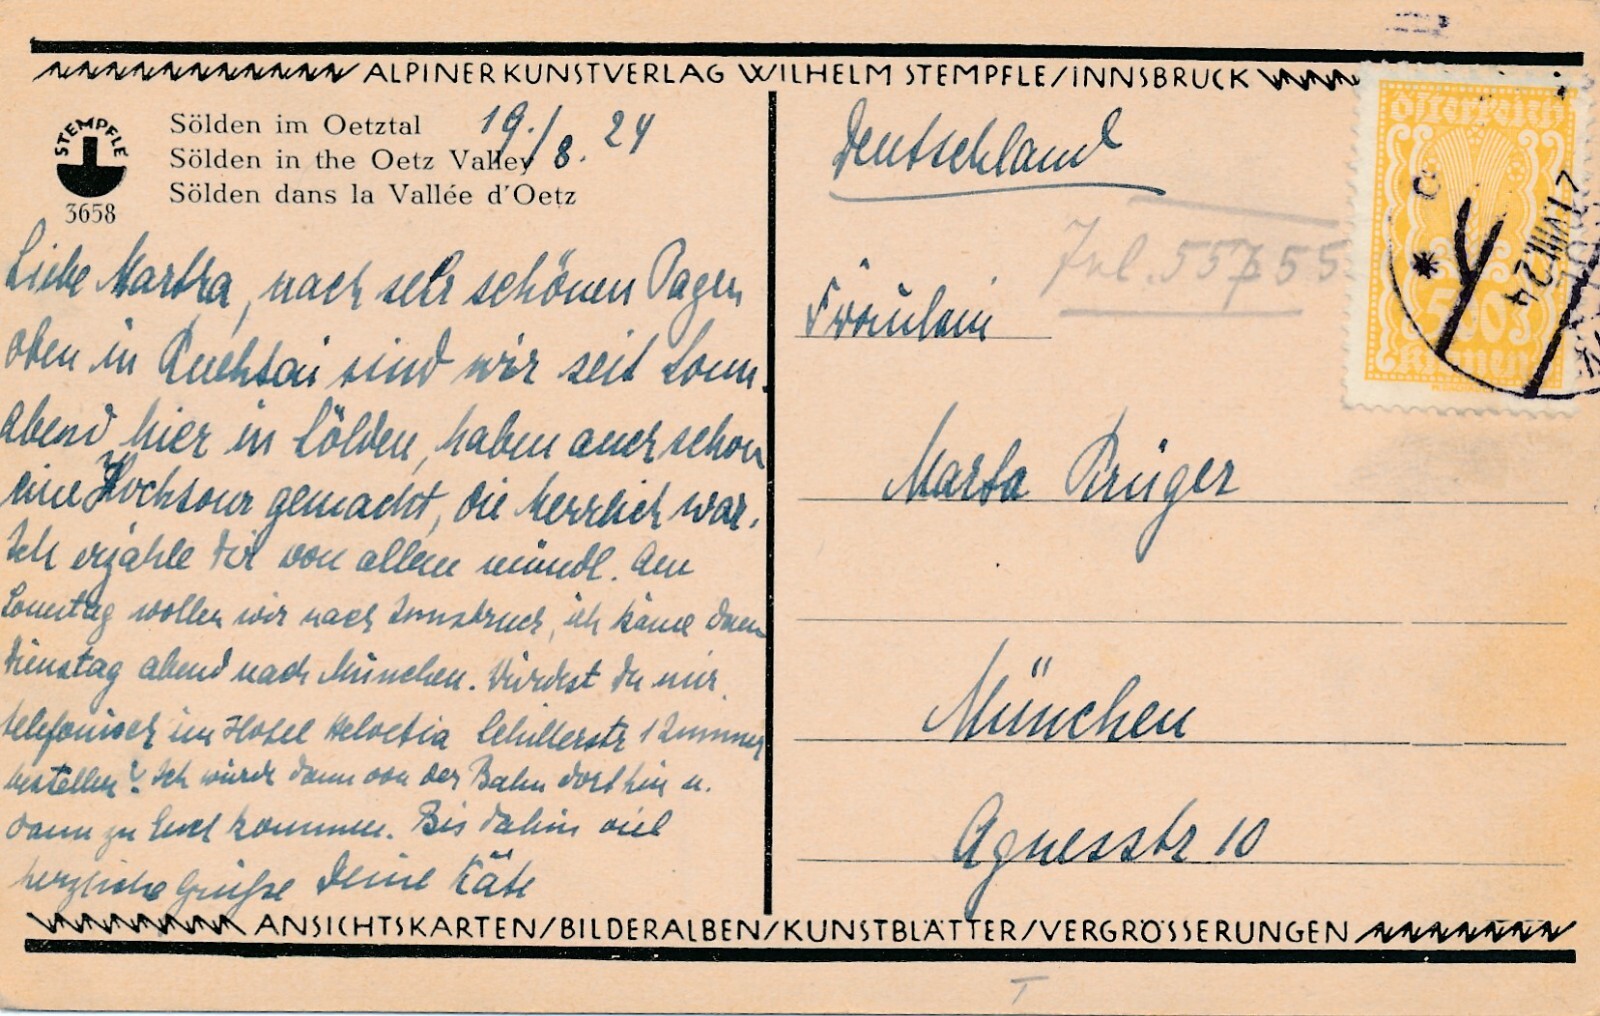 ALPINER KUNSTVERLAG WILHELM STEMPFLE/INNSBRUCK
STEMPFLE
3658
Sölden im Oetztal
Sölden in the Oetz Valley
Sölden dans la Vallée d'Oetz
19./8. 24
Liebe Martha, nach sehr schönen Tagen
oben in sind wir seit Sonn-
abend hier in Sölden, haben auch schon
eine Hochtour gemacht, die herrlich war.
Ich erzähle Dir von allem mündl. Am
Sonntag wollen wir nach Innsbruck, ich käme dann
Dienstag abend nach München. Würdest Du mir
telefonisch im Hotel Helvetia Schillerstr 1 Zimmer
bestellen? Ich würde dann von der Bahn dorthin u.
dann zu Euch kommen. Bis dahin viel
herzliche Grüße Deine Käte
Deutschland
Tel. 55755
Fräulein
Marta Krüger
München
Agnesstr 10
Österreich
500
Kronen
VIII.24
ANSICHTSKARTEN/BILDERALBEN/KUNSTBLÄTTER/VERGRÖSSERUNGEN